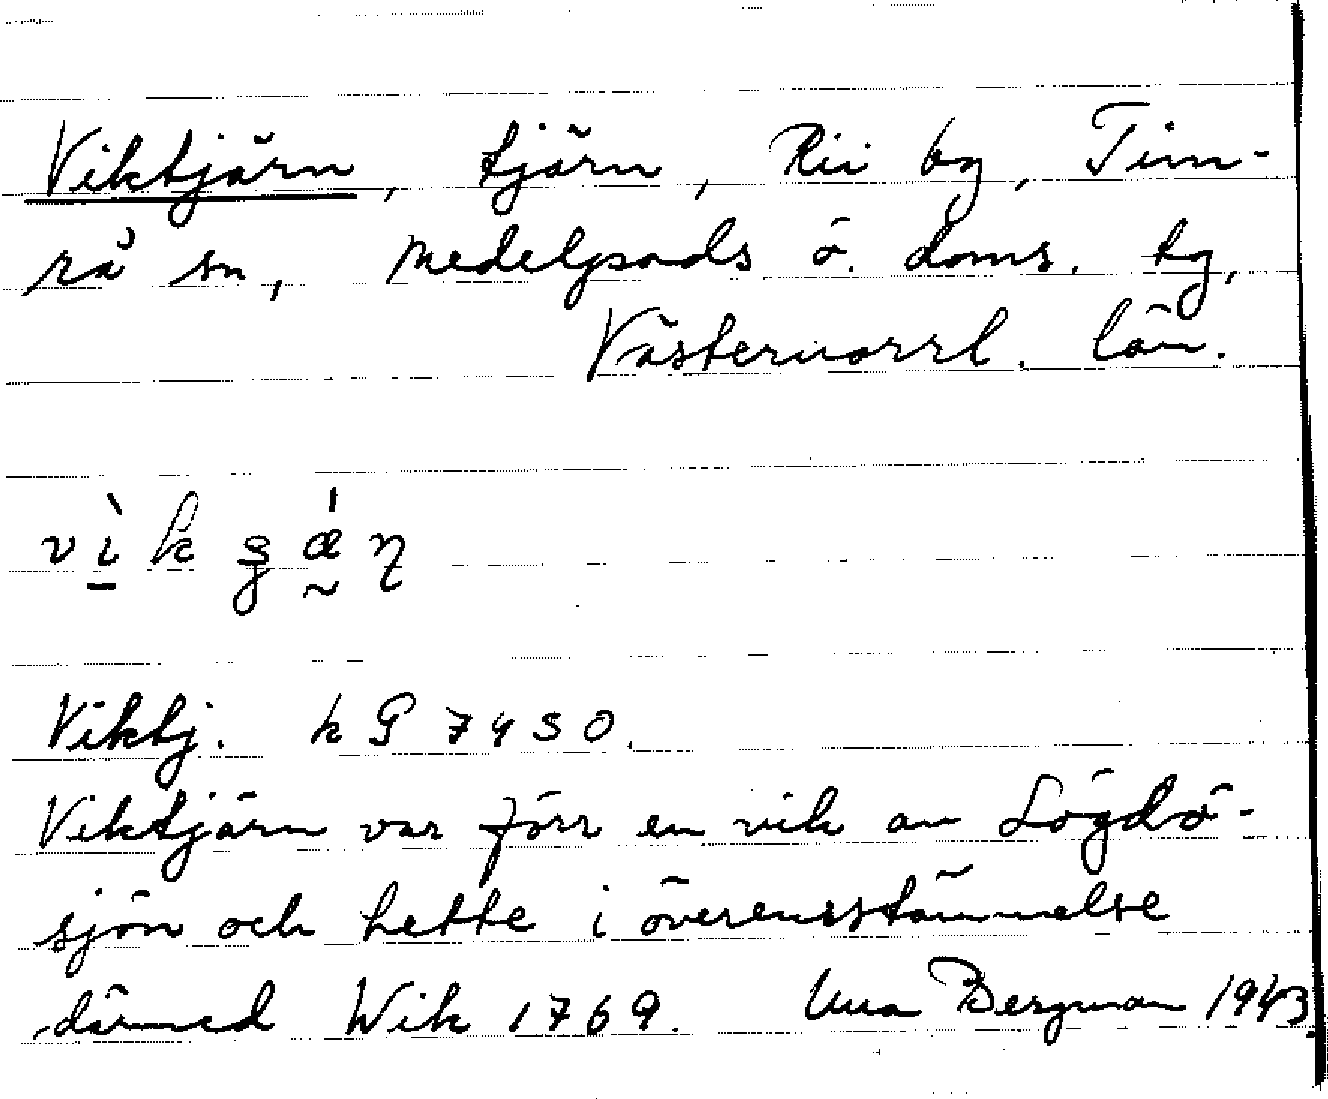 Viktjärn, tjärn, Rii by, Tim-
rå sn, Medelpads ö. doms. tg,
Västernorrl. län.
Viktj.
Viktjärn var förr en vik av Lögdö-
sjön och hette i överensstämmelse
därmed Wik 1769. Una Bergman 1943.